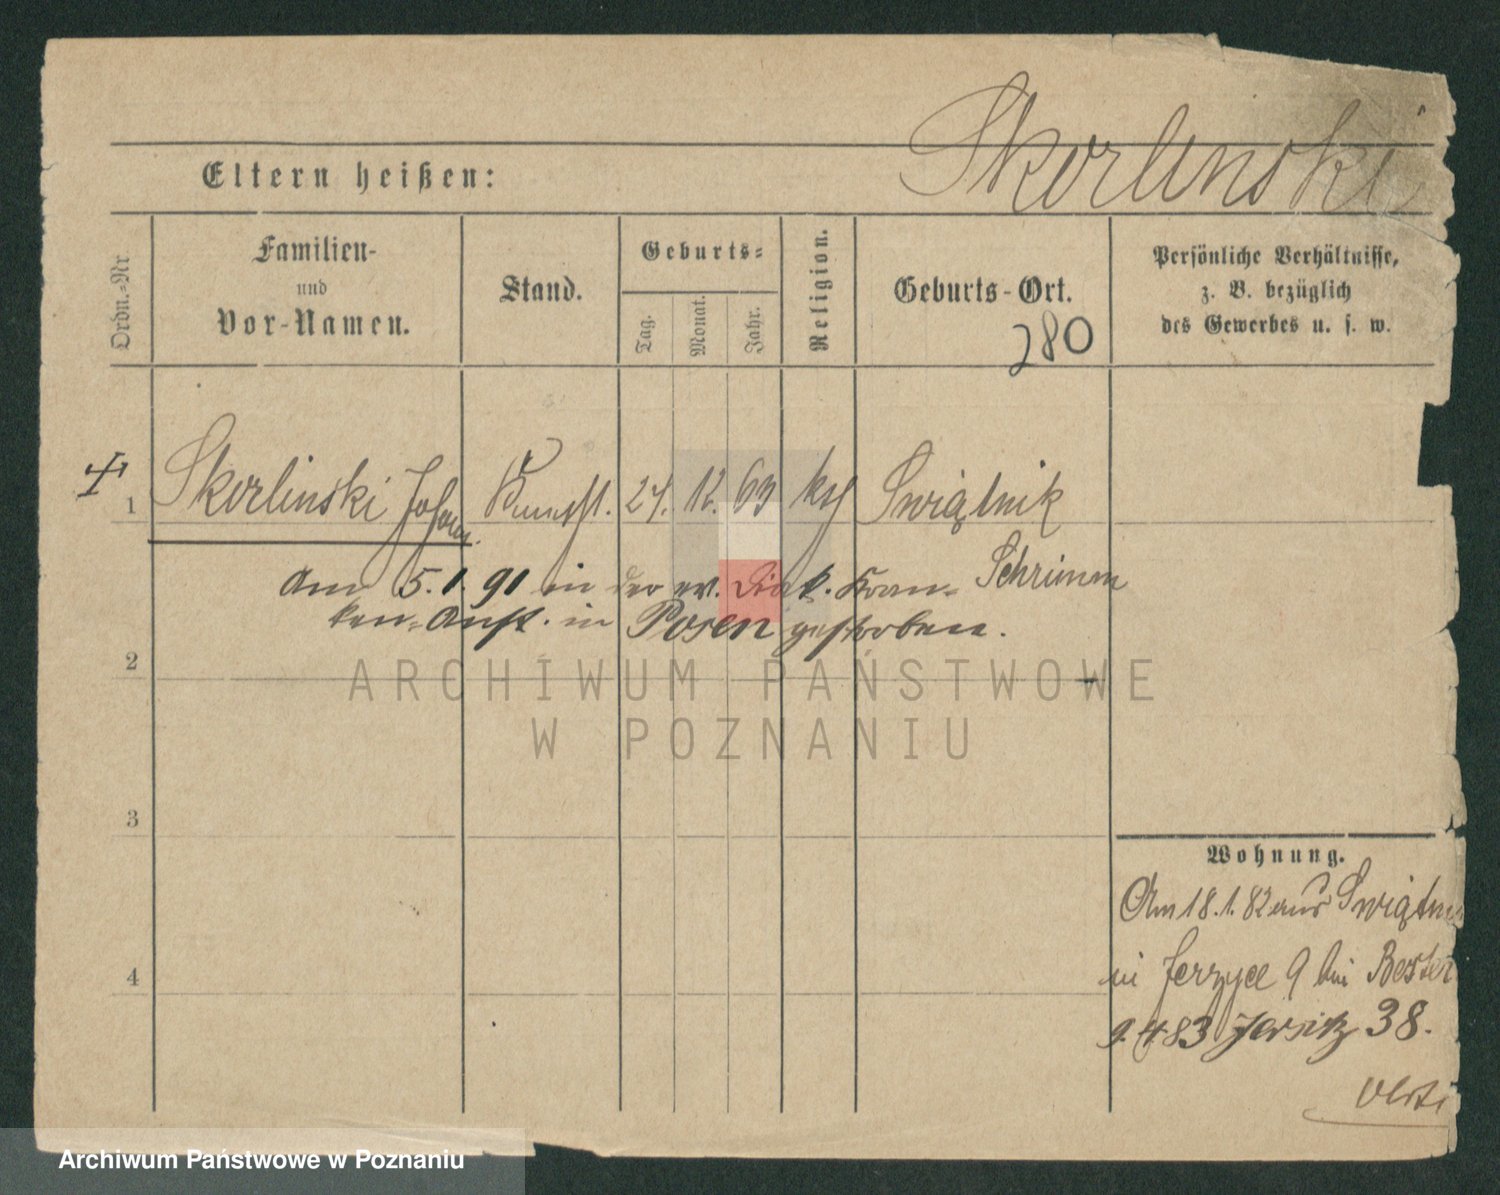 Skorlinski
Eltern heißen:
Ordn.-Nr
Familien-
und
Vor-Namen.
Stand.
Geburts-
Tag.
Monat.
Jahr.
Religion.
Geburts-Ort.
280
Persönliche Verhältnisse,
z. B. bezüglich
des Gewerbes u. s. w.
1 Skorlinski Johann 24. 12. 63 Swiątnik
Schrimm
Am 5.1.91 in der ev. Diak. Kran-
ken-Anst. in Posen gestorben.
2
ARCHIWUM PAŃSTWOWE
W POZNANIU
3
Wohnung.
Am 18.1.82 aus
in Jerzyce 9 bei
9.4.83 Jersitz 38.
4
Archiwum Państwowe w Poznaniu